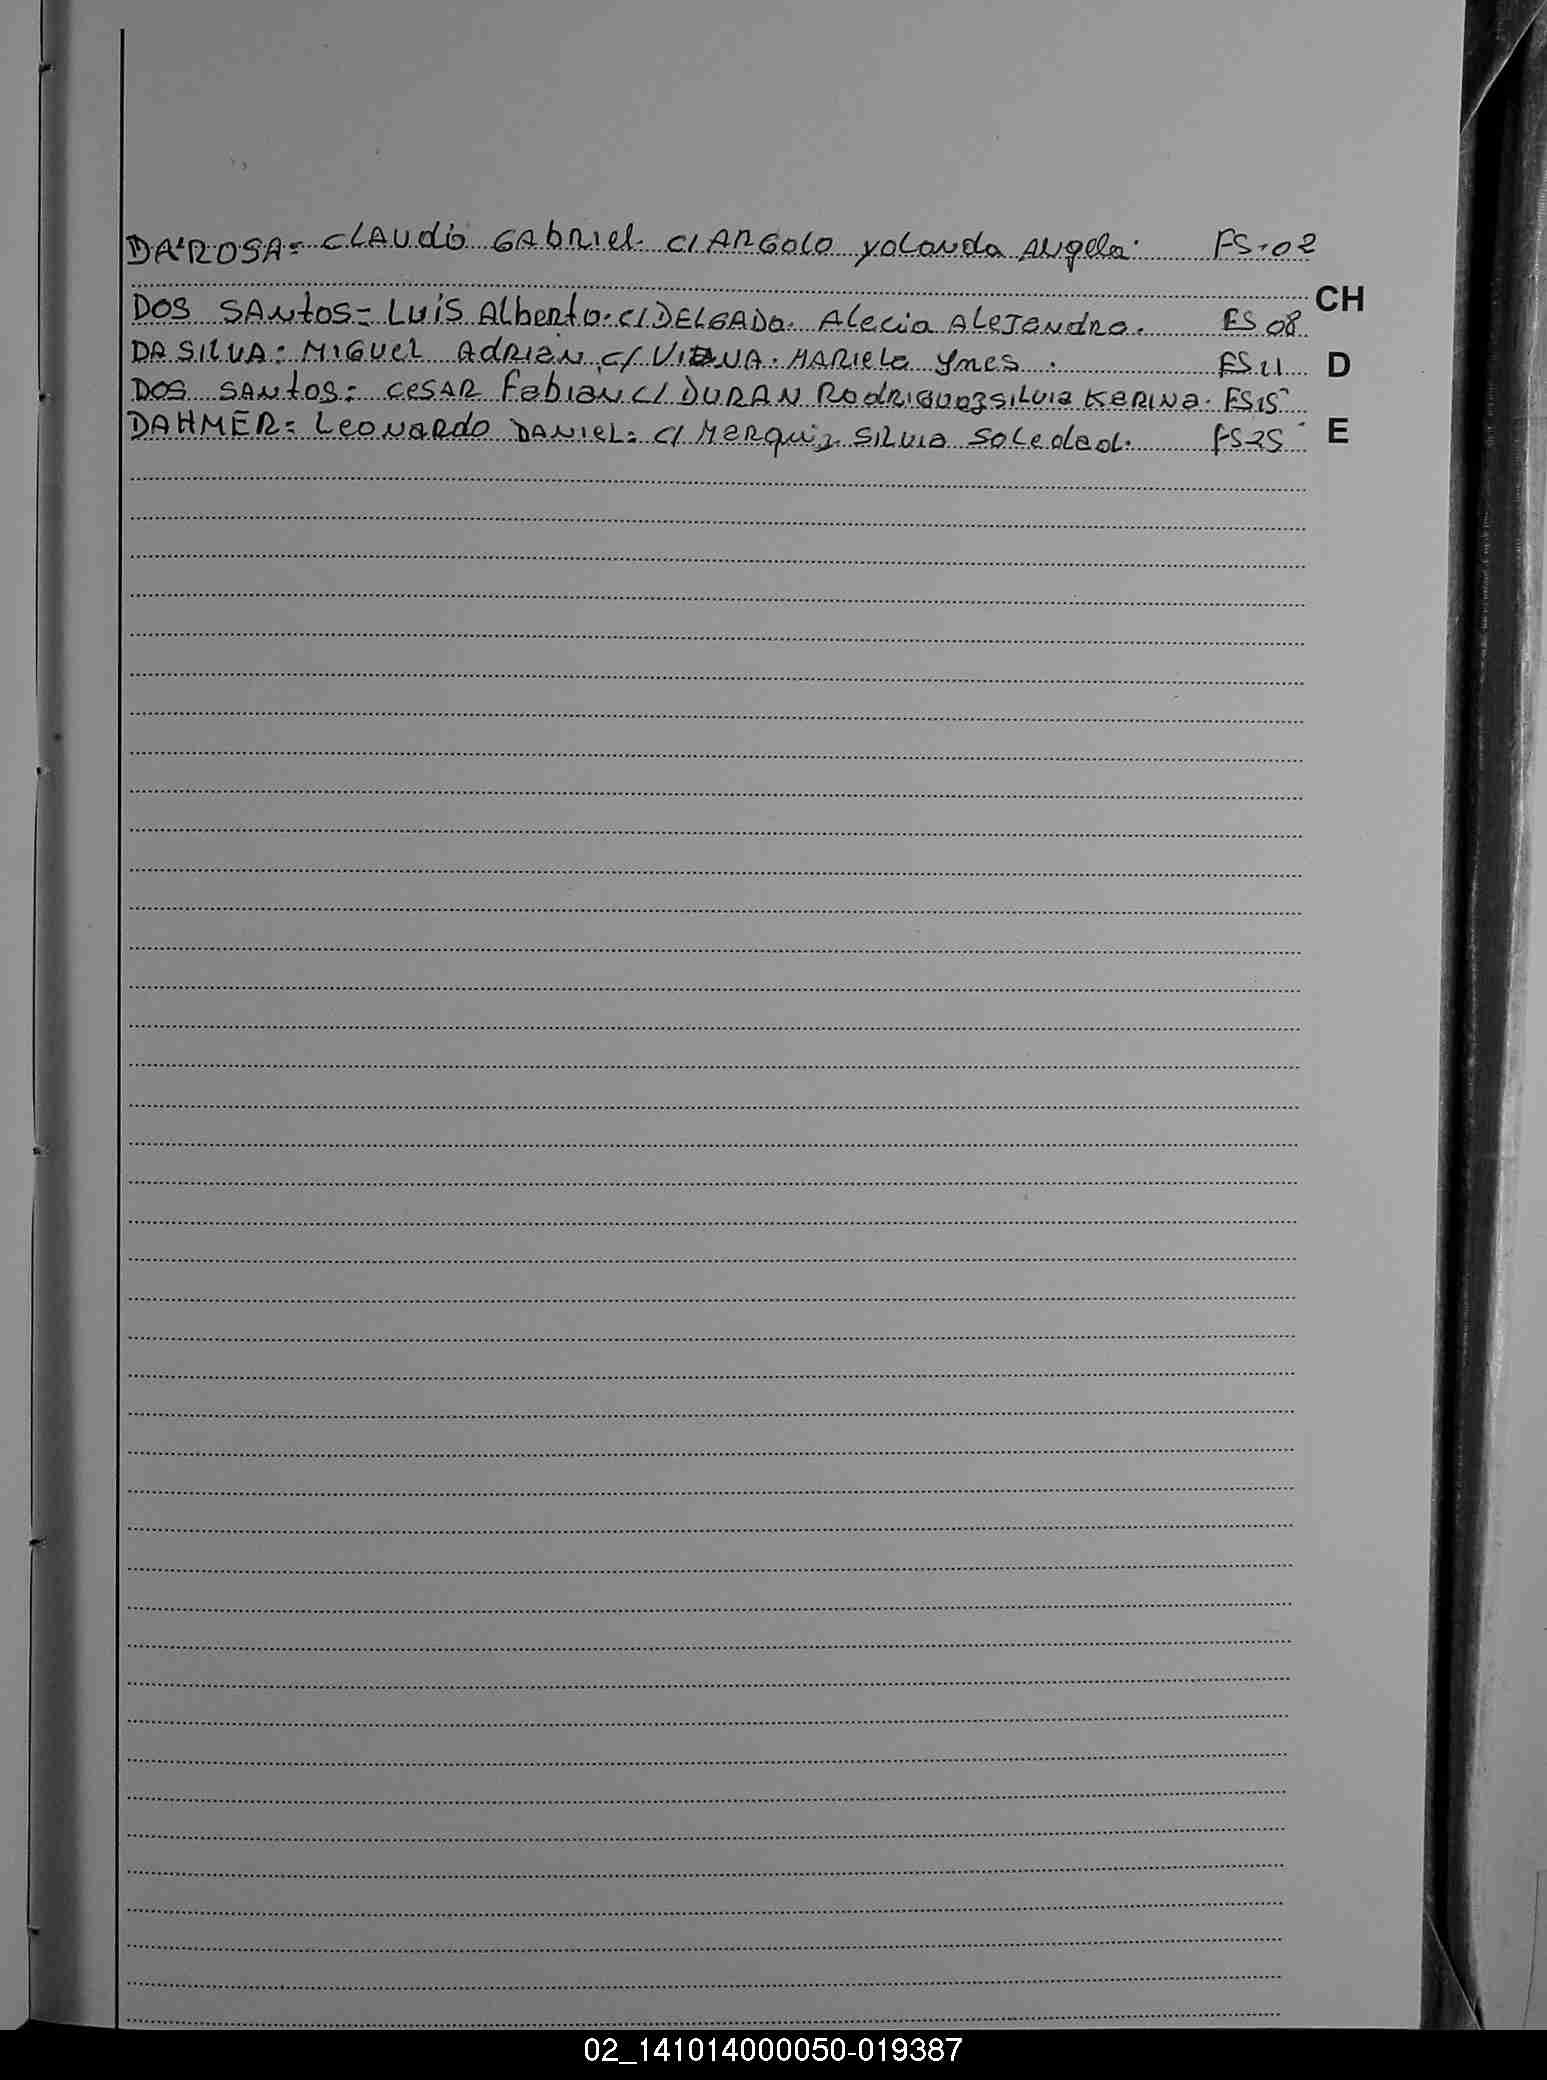 DA'ROSA= CLAUDIO GAbRIEL. C/ ARGOLO YOLANDA ANGELA. FS-02
CH
DOS SANTOS= LUIS ALBERTO. C/ DELGADO. ALECIA ALEJANDRA. FS 08
DA SILVA: MIGUEL ADRIAN C/ VIANA. MARIELA YNES. FS 11
D
DOS SANTOS: CESAR FABIAN C/ DURAN RODRIGUEZ SILVIA KARINA. FS 15
DAHMER= LEONARDO DANIEL= C/ MARQUIZ. SILVIA SOLEDAD. FS 25
E
02_141014000050-019387